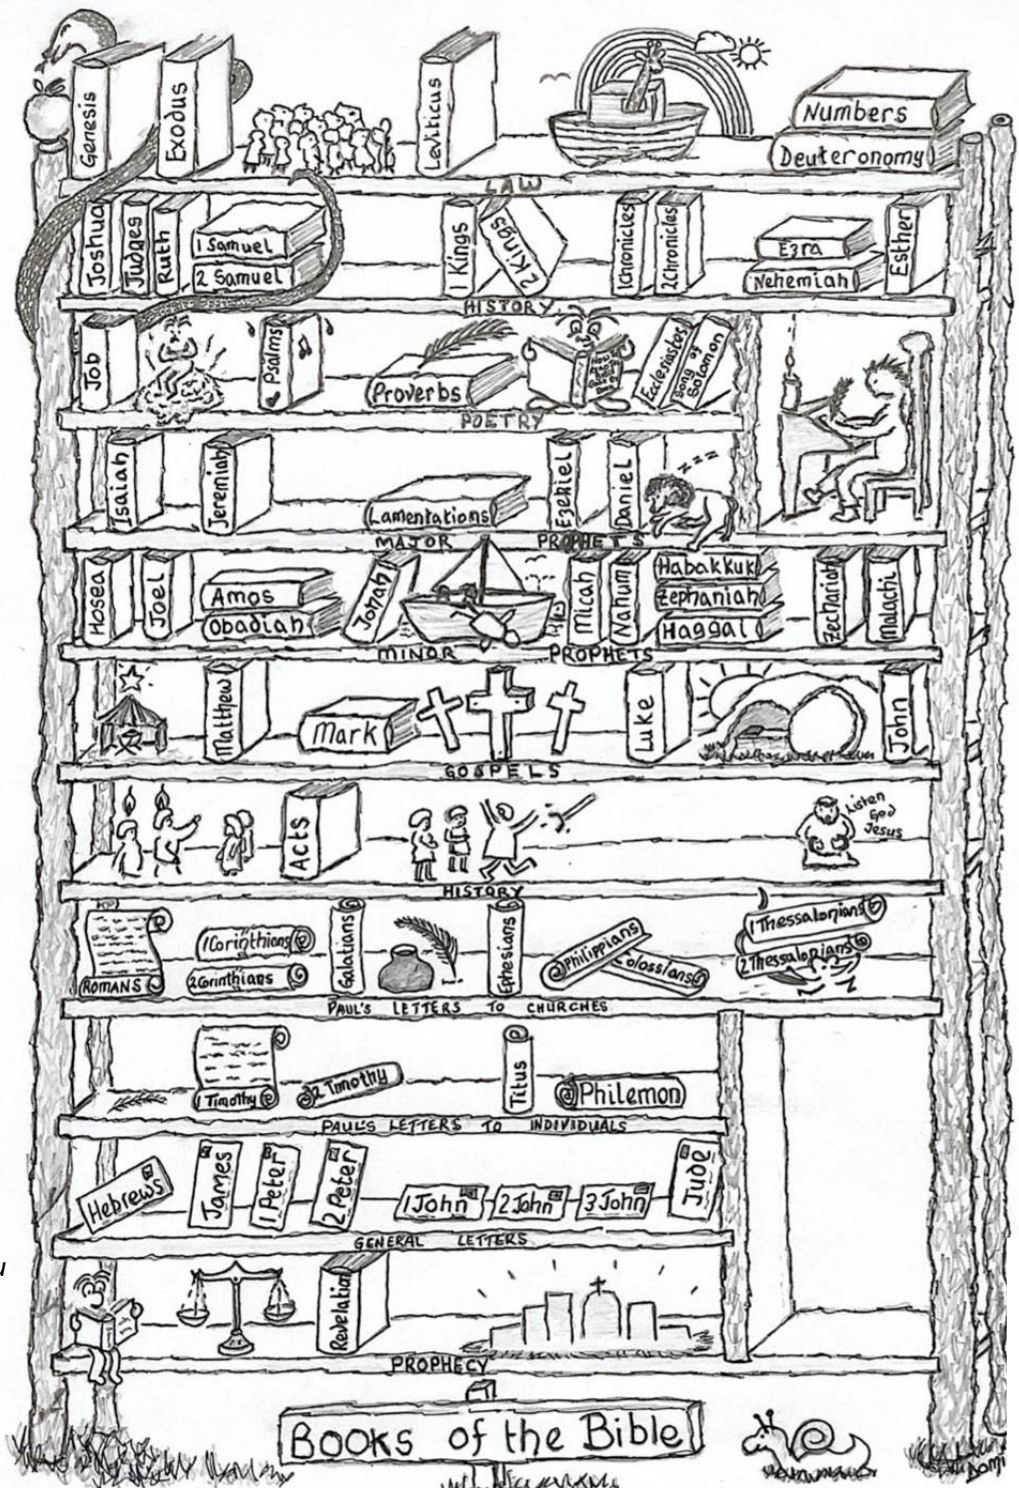 Genesis
Exodus
Leviticus
Numbers
Deuteronomy
LAW
Joshua
Judges
Ruth
1 Samuel
2 Samuel
1 Kings
2 Kings
1 Chronicles
2 Chronicles
Ezra
Nehemiah
Esther
HISTORY
Job
Psalms
Proverbs
Ecclesiastes
Song of
Solomon
POETRY
Isaiah
Jeremiah
Lamentations
Ezekiel
Daniel
zzz
MAJOR PROPHETS
Hosea
Joel
Amos
Obadiah
Jonah
Micah
Nahum
Habakkuk
Zephaniah
Haggai
Zechariah
Malachi
MINOR PROPHETS
Matthew
Mark
Luke
John
GOSPELS
Acts
Listen
God
Jesus
HISTORY
ROMANS
1Corinthians
2Corinthians
Galatians
Ephesians
Philippians
Colossians
1 Thessalonians
2 Thessalonians
PAUL'S LETTERS TO CHURCHES
1 Timothy
2 Timothy
Titus
Philemon
PAUL'S LETTERS TO INDIVIDUALS
Hebrews
James
1 Peter
2 Peter
1 John
2 John
3 John
Jude
GENERAL LETTERS
Revelation
PROPHECY
BOOKS of the Bible
Domi